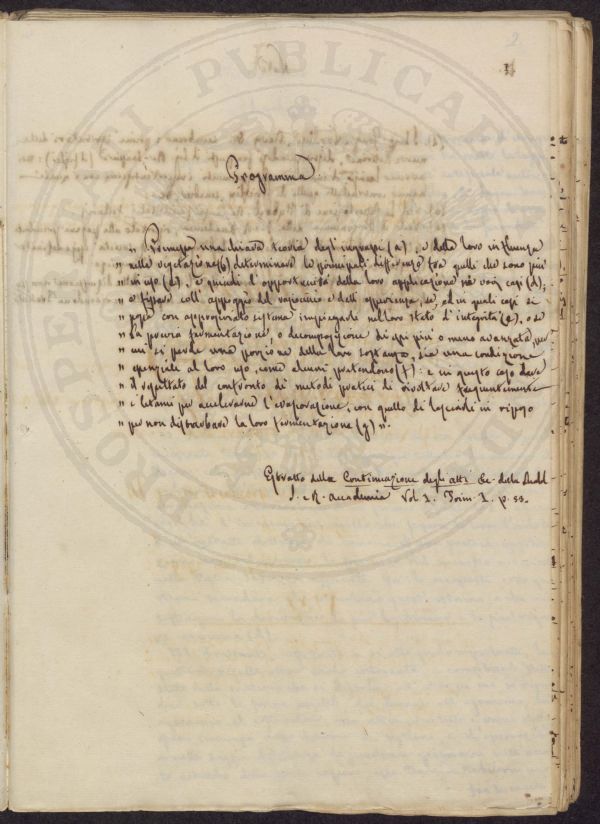 2
1
Programma
" Premessa una chiara teoria degl'ingrassi (a), e della loro influenza
" nella vegetazione (b) determinare le principali differenze tra quelli che sono più
" in uso (c), e quindi l'opportunità della loro applicazione ne' varj casi (d),
" e fissare coll'appoggio del raziocinio e dell'esperienza, se, ed in quali casi si
" possa con approvato sistema impiegarli nel loro stato d'integrità (e), o se
" la previa fermentazione, o decomposizione di essi più o meno avanzata, per
" cui si perde una porzione della loro sostanza, sia una condizione
" essenziale al loro uso, come alcuni pretendono (f): e in questo caso dare
" il risultato del confronto di metodi pratici di rivoltare frequentemente
" i letami per accelerarne l'evaporazione, con quello di lasciarli in riposo
" per non disturbare la loro fermentazione (g) ".
Estratto della Continuazione degli atti Ec. della
I. e R. Accademia Vol. 3. Tom. I. p. 53.
PROSPERI PUBLICAE